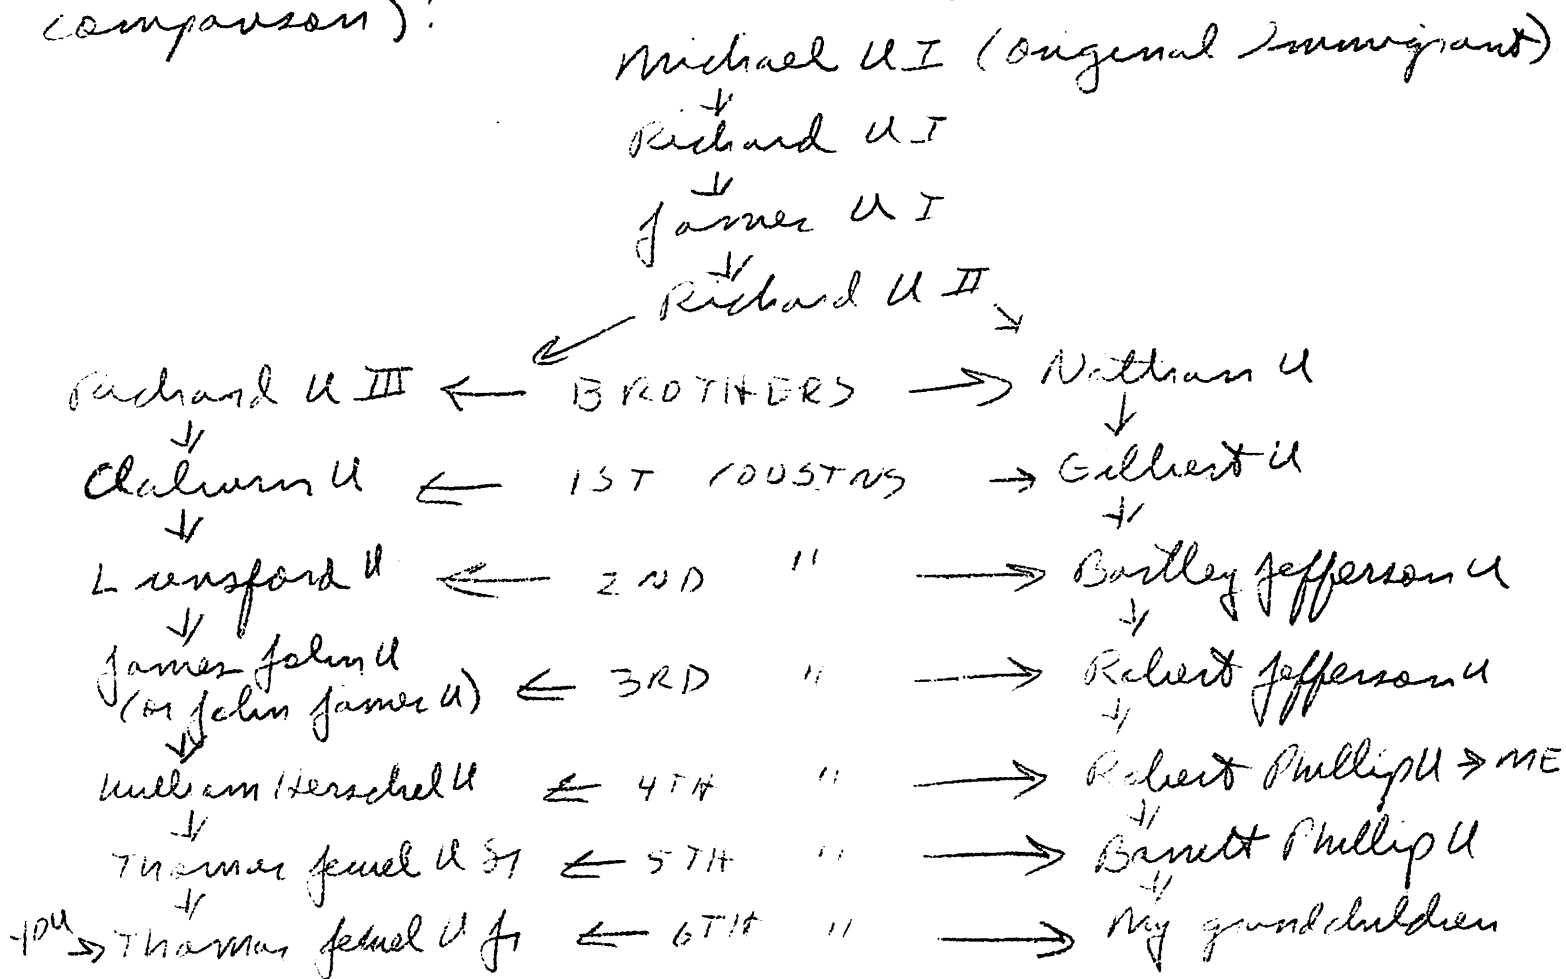 comparison):
Michael U I (original Immigrant)
Richard U I
James U I
Richard U II
Richard U III ← BROTHERS → Nathan U
U ← 1ST COUSINS → Gilbert U
Lunsford U ← 2ND " → Bartley Jefferson U
James John U
(or John James U) ← 3RD " → Robert Jefferson U
William Herschel U ← 4TH " → Robert Phillip U → ME
Thomas Jewel U Sr ← 5TH " → Barrett Phillip U
YOU → Thomas Jewel U Jr ← 6TH " → My grandchildren